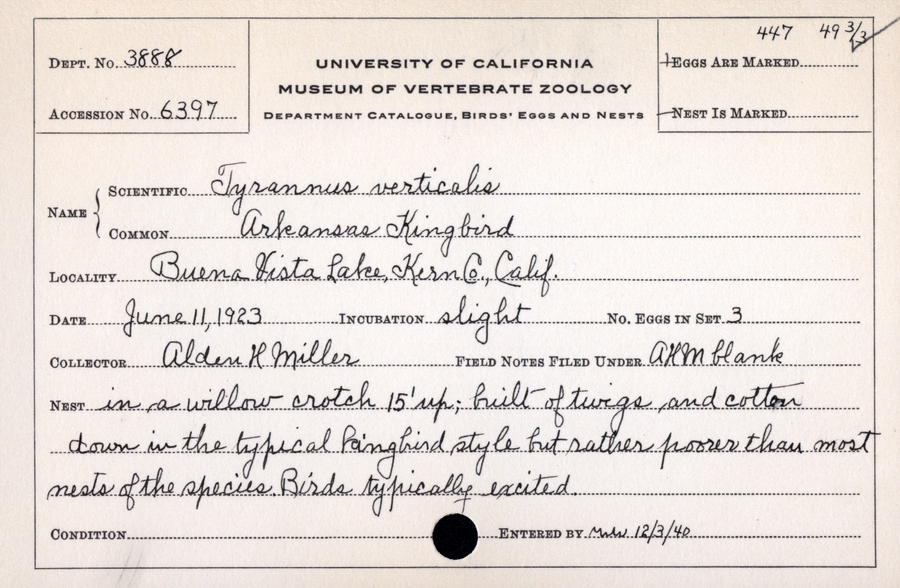 447 49 3/3
DEPT. NO. 3888
UNIVERSITY OF CALIFORNIA
EGGS ARE MARKED
MUSEUM OF VERTEBRATE ZOOLOGY
ACCESSION NO. 6397
DEPARTMENT CATALOGUE, BIRDS' EGGS AND NESTS
NEST IS MARKED
NAME
SCIENTIFIC Tyrannus verticalis
COMMON Arkansas Kingbird
LOCALITY Buena Vista Lake, Kern Co., Calif.
DATE June 11, 1923 INCUBATION slight NO. EGGS IN SET 3
COLLECTOR Alden H Miller FIELD NOTES FILED UNDER AHM blank
NEST in a willow crotch 15' up; built of twigs and cotton
down in the typical kingbird style but rather poorer than most
nests of the species. Birds typically excited.
CONDITION ENTERED BY 12/3/40